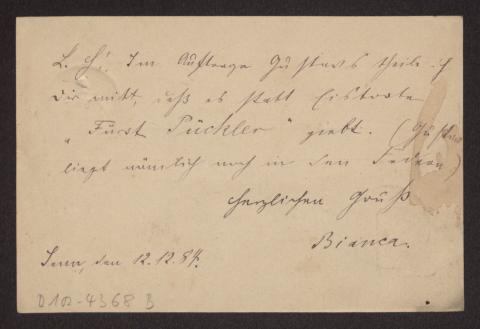 L. E! Im Auftrage Gustavs theile ich
Dir mitt, daß es statt Eistorte
„Fürst Pückler" giebt. (Gustav
liegt nämlich noch in den Federn)
Herzlichen Gruß
Bianca.
Jena, den 12.12.84.
D102-4368 B